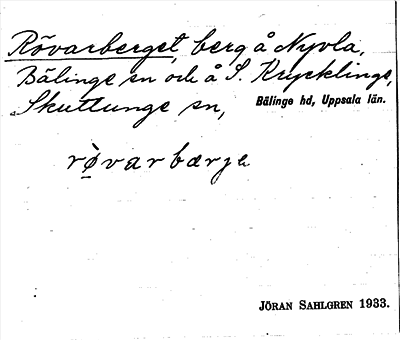 Rövarberget, berg å Nyvla,
Bälinge sn och å S. Krycklinge,
Skuttunge sn, Bälinge hd, Uppsala län.
rø̀varbærjə
JÖRAN SAHLGREN 1933.